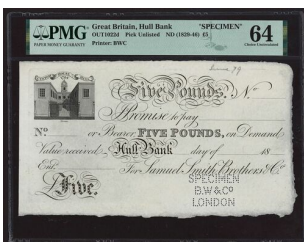 PMG
PAPER MONEY GUARANTY
Great Britain, Hull Bank "SPECIMEN"
OUT1022d Pick Unlisted ND (1829-40) £5
Printer: BWC
64
Choice Uncirculated
Five Pounds. No
I Promise to pay
No or Bearer FIVE POUNDS, on Demand
Value received Hull Bank day of 18
Ent.
For Samuel Smith Brothers & Co
£Five.
SPECIMEN
B.W & Co
LONDON